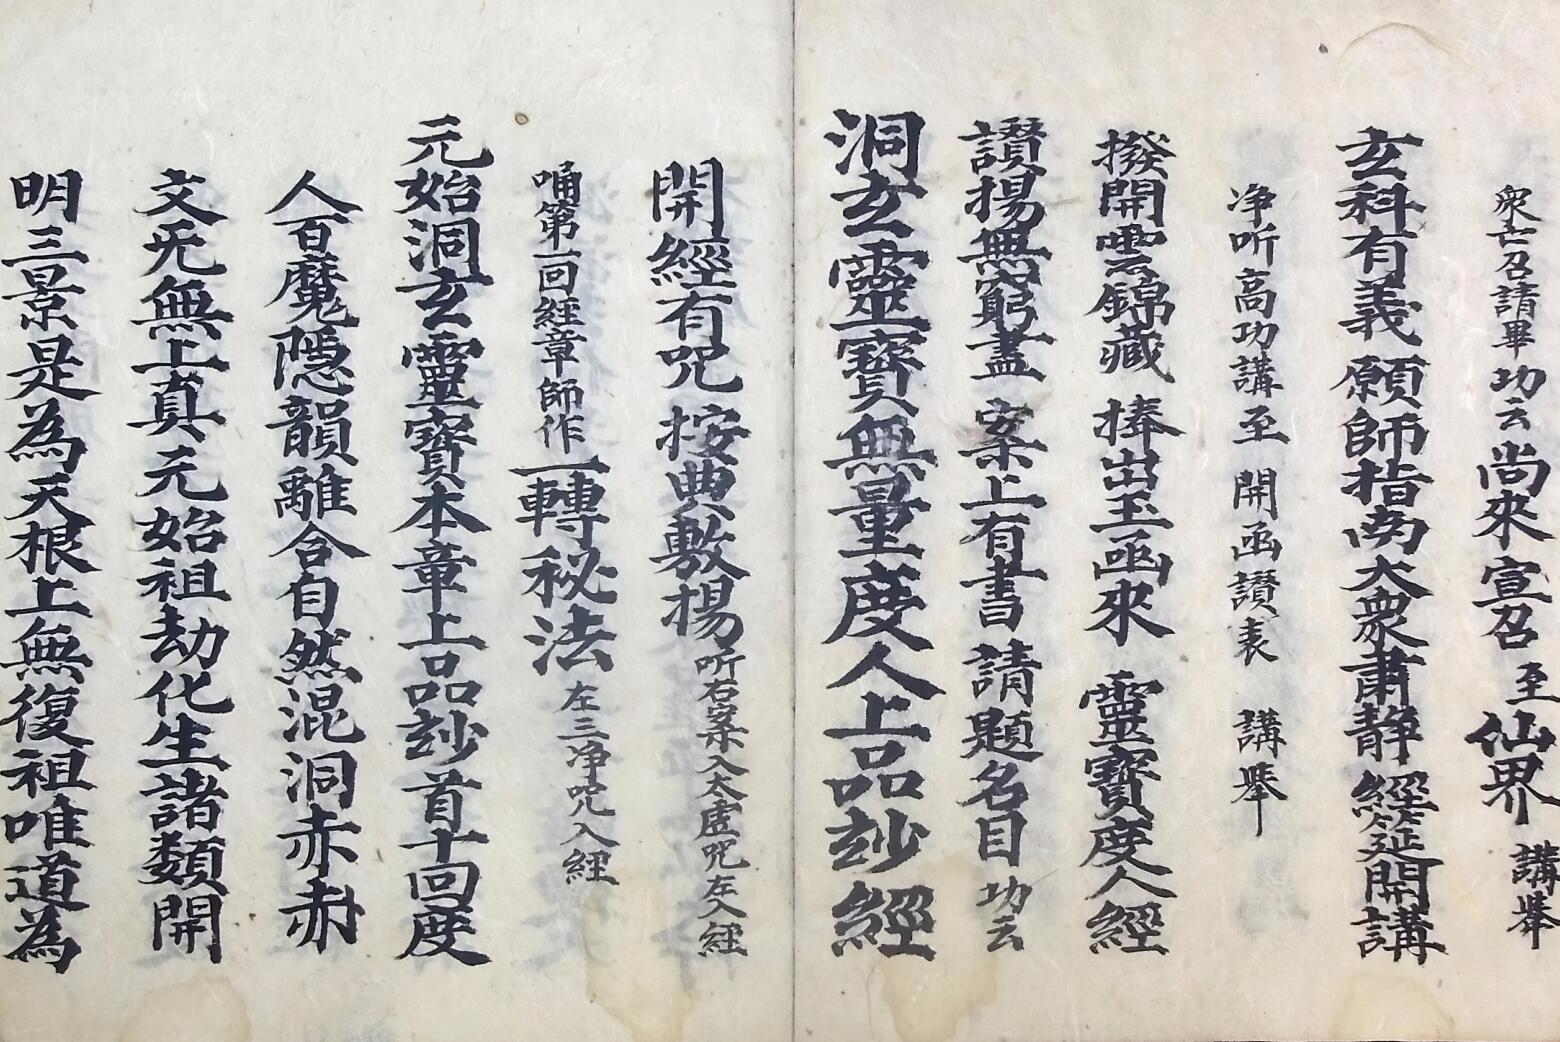 衆亡召請畢功云尚來宣召至仙界講举
玄科有義願師指南大衆肅静經筵開講
净听高功講至開函讚表講举
撥開雲錦藏捧出玉函來靈寶度人經
讃揚無窮盡案上有書請題名目功云
洞玄靈寶無量度人上品玅經
開經有咒按典敷揚听右案入太虚咒左入経
唪第一回経章師作一轉秘法左三净咒入経
元始洞玄靈寶本章上品玅首十回度
人百魔隠韻離合自然混洞赤
文旡無上真元始祖劫化生諸類開
明三景是為天根上無復祖唯道為